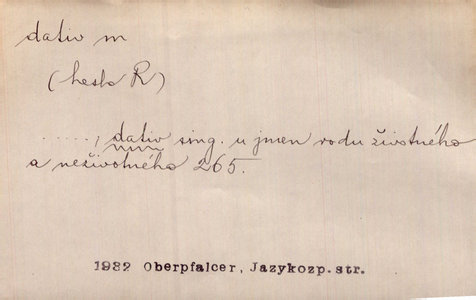 dativ m
(heslo R)
....., dativ sing. u jmen rodu životného
a neživotného 265.
1932 Oberpfalcer, Jazykozp. str.